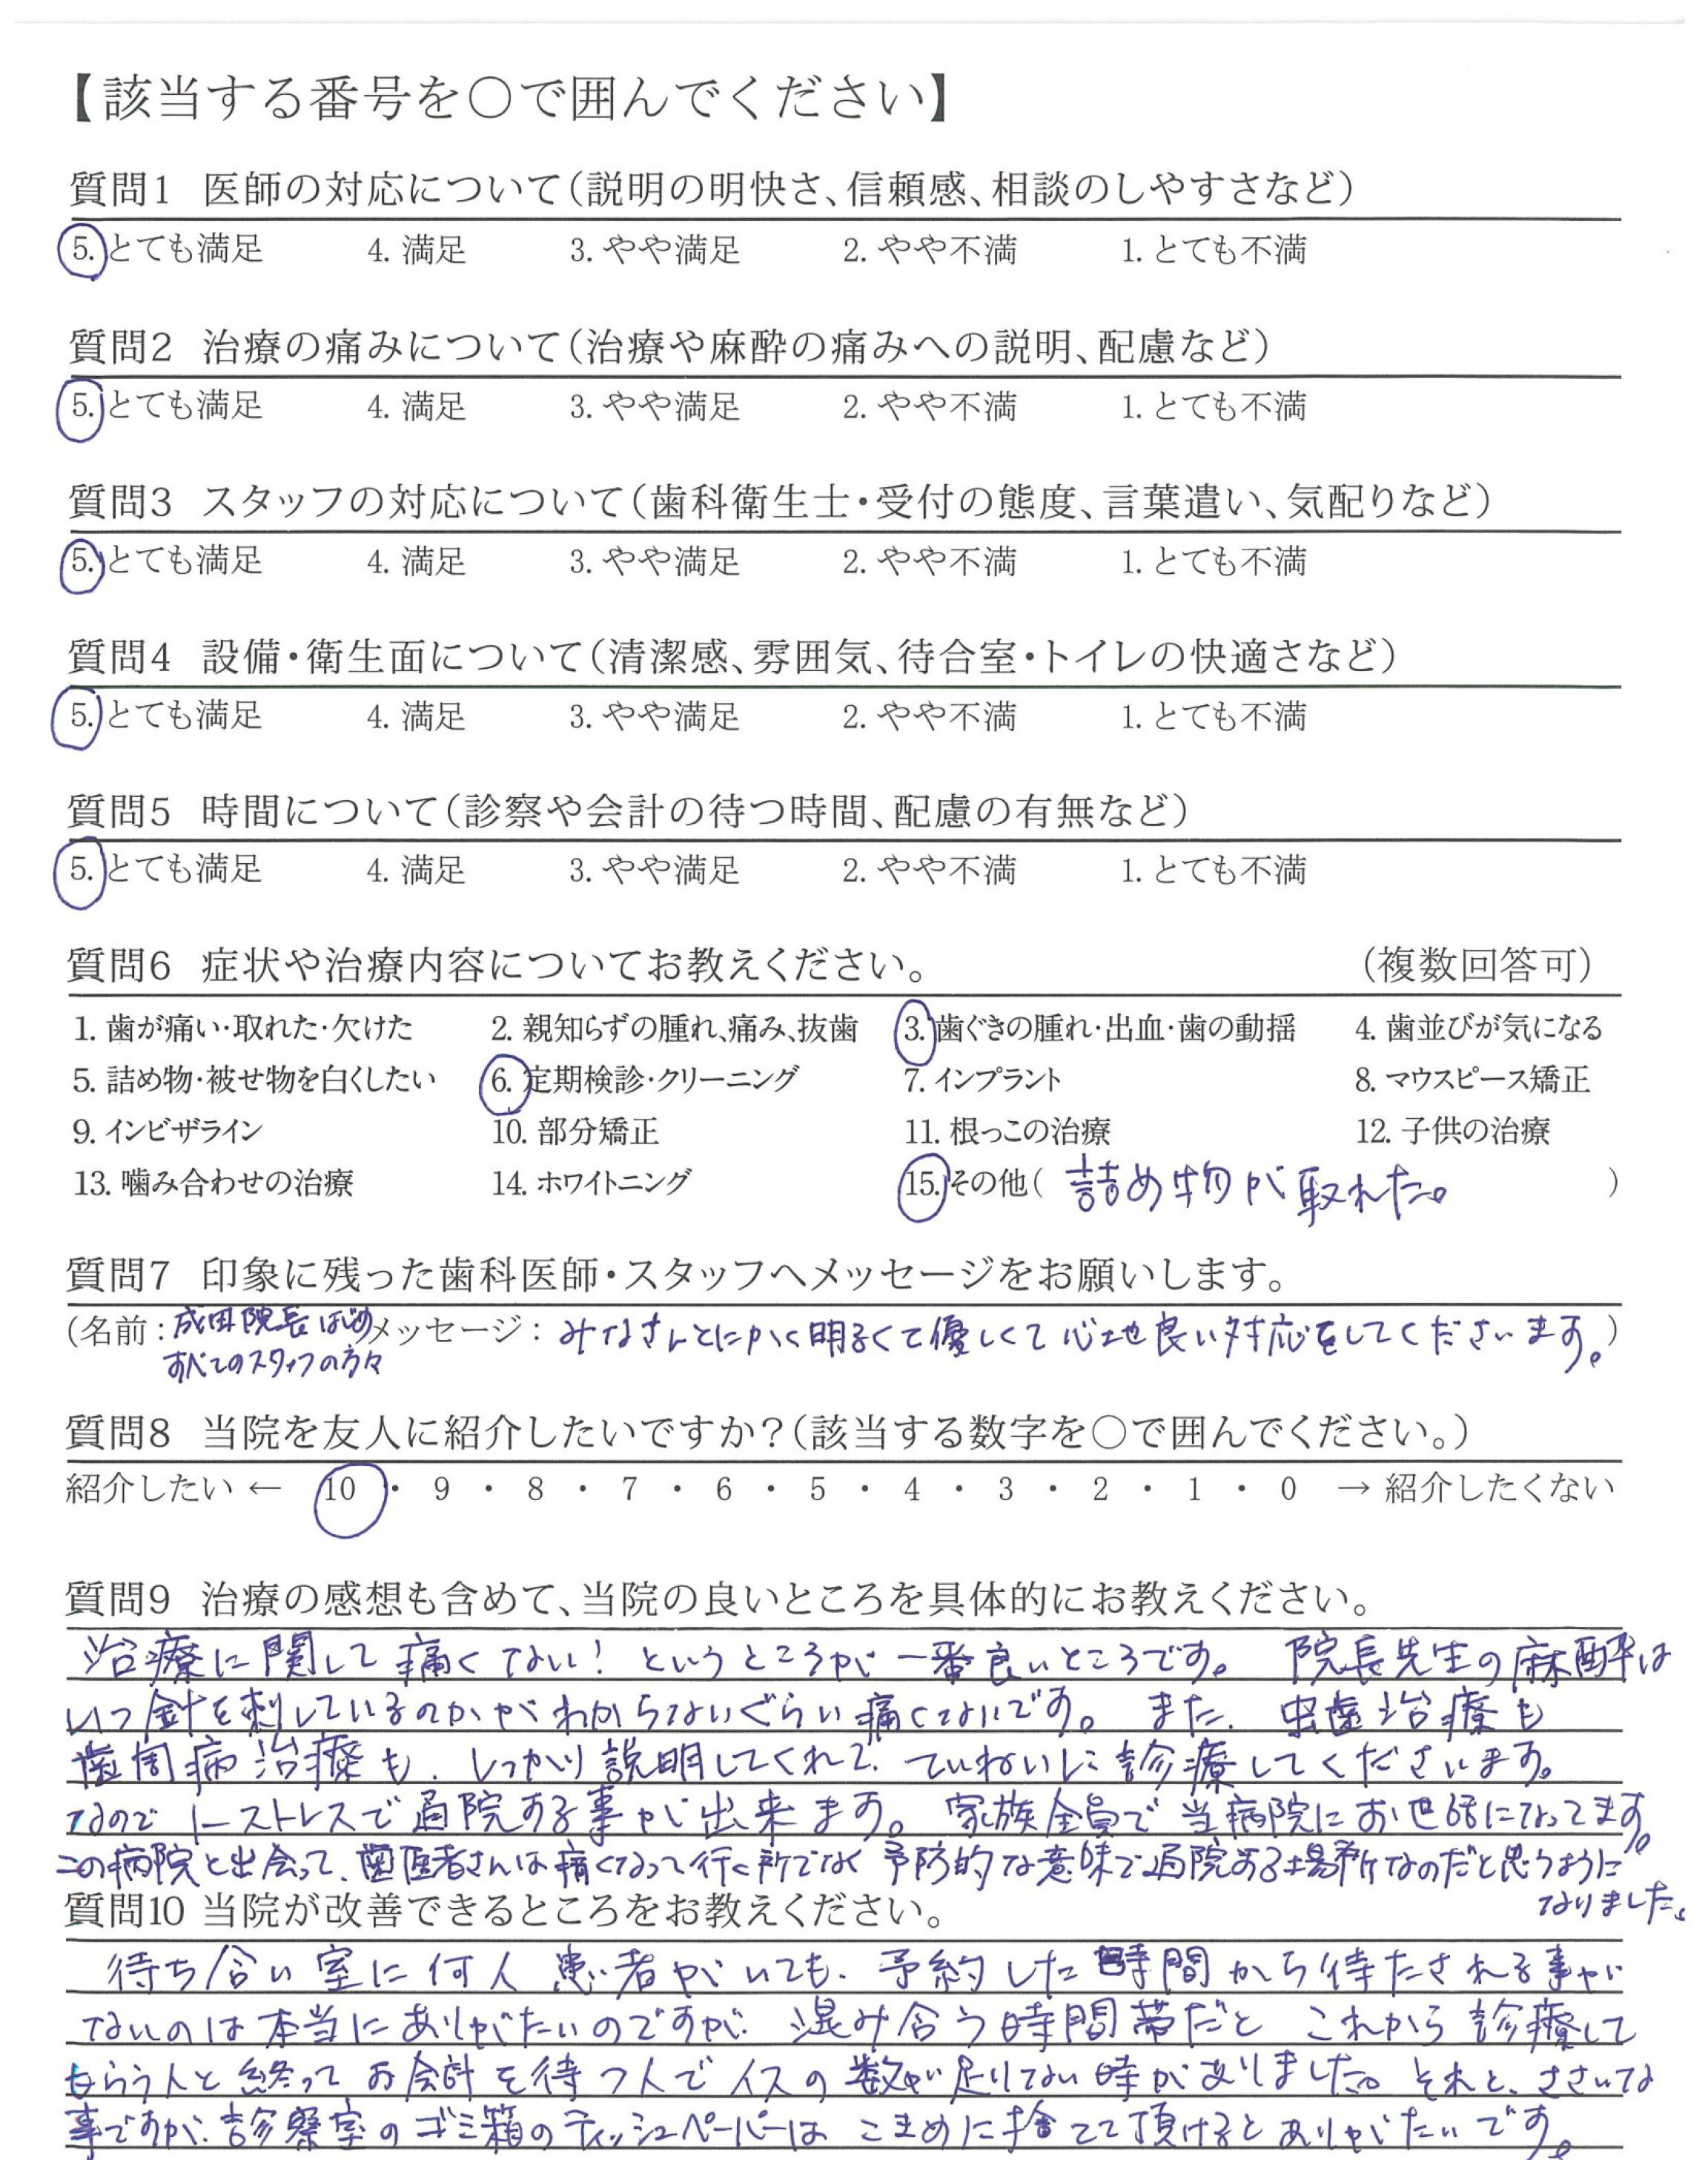 【該当する番号を〇で囲んでください】
質問1 医師の対応について(説明の明快さ、信頼感、相談のしやすさなど)
5. とても満足 4. 満足 3. やや満足 2. やや不満 1. とても不満
質問2 治療の痛みについて(治療や麻酔の痛みへの説明、配慮など)
5. とても満足 4. 満足 3. やや満足 2. やや不満 1. とても不満
質問3 スタッフの対応について(歯科衛生士・受付の態度、言葉遣い、気配りなど)
5. とても満足 4. 満足 3. やや満足 2. やや不満 1. とても不満
質問4 設備・衛生面について(清潔感、雰囲気、待合室・トイレの快適さなど)
5. とても満足 4. 満足 3. やや満足 2. やや不満 1. とても不満
質問5 時間について(診察や会計の待つ時間、配慮の有無など)
5. とても満足 4. 満足 3. やや満足 2. やや不満 1. とても不満
質問6 症状や治療内容についてお教えください。 (複数回答可)
1. 歯が痛い・取れた・欠けた 2. 親知らずの腫れ、痛み、抜歯 3. 歯ぐきの腫れ・出血・歯の動揺 4. 歯並びが気になる
5. 詰め物・被せ物を白くしたい 6. 定期検診・クリーニング 7. インプラント 8. マウスピース矯正
9. インビザライン 10. 部分矯正 11. 根っこの治療 12. 子供の治療
13. 噛み合わせの治療 14. ホワイトニング 15. その他( 詰め物が取れた。 )
質問7 印象に残った歯科医師・スタッフへメッセージをお願いします。
(名前: 成田院長はじめ メッセージ: みなさんとにかく明るくて優しくて心地良い対応をしてくださいます。)
すべてのスタッフの方々
質問8 当院を友人に紹介したいですか?(該当する数字を〇で囲んでください。)
紹介したい ← 10 ・ 9 ・ 8 ・ 7 ・ 6 ・ 5 ・ 4 ・ 3 ・ 2 ・ 1 ・ 0 → 紹介したくない
質問9 治療の感想も含めて、当院の良いところを具体的にお教えください。
治療に関して痛くない! というところが一番良いところです。 院長先生の麻酔は
いつ針を刺しているのかがわからないぐらい痛くないです。 また、虫歯治療も
歯周病治療も、しっかり説明してくれて、ていねいに診療してくださいます。
なのでノーストレスで通院する事が出来ます。家族全員で当病院にお世話になってます。
この病院と出会って、歯医者さんは痛くなって行く所でなく予防的な意味で通院する場所なのだと思うように
なりました。
質問10 当院が改善できるところをお教えください。
待ち合い室に何人患者がいても、予約した時間から待たされる事が
ないのは本当にありがたいのですが、混み合う時間帯だと これから診療して
もらう人と終ってお会計を待つ人でイスの数が足りない時がありました。それと、ささいな
事ですが、診察室のゴミ箱のティッシュペーパーは こまめに捨てて頂けるとありがたいです。